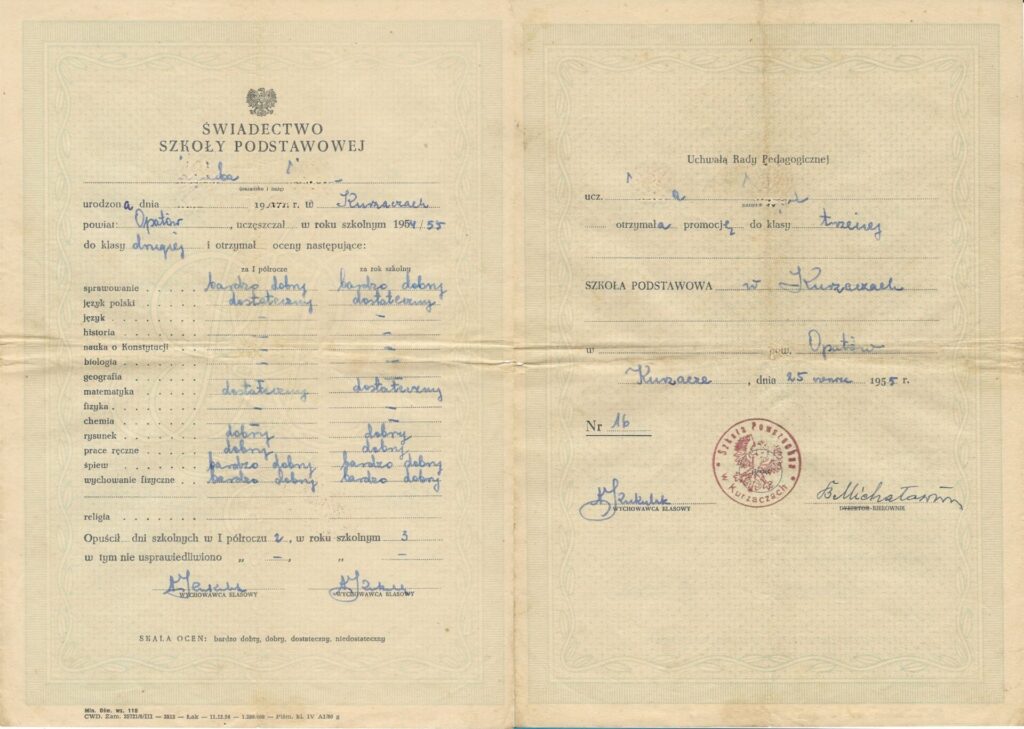 ŚWIADECTWO
SZKOŁY PODSTAWOWEJ
(nazwisko i imię)
urodzona dnia 19 r. w Kurzaczach
powiat: Opatów, uczęszczał w roku szkolnym 1954/55
do klasy drugiej i otrzymał oceny następujące:
za I półrocze za rok szkolny
sprawowanie bardzo dobry bardzo dobry
język polski dostateczny dostateczny
język — —
historia — —
nauka o Konstytucji — —
biologia — —
geografia — —
matematyka dostateczny dostateczny
fizyka — —
chemia — —
rysunek dobry dobry
prace ręczne dobry dobry
śpiew bardzo dobry bardzo dobry
wychowanie fizyczne bardzo dobry bardzo dobry
religia
Opuścił dni szkolnych w I półroczu 2, w roku szkolnym 3
w tym nie usprawiedliwiono „ —, „ —
WYCHOWAWCA KLASOWY WYCHOWAWCA KLASOWY
SKALA OCEN: bardzo dobry, dobry, dostateczny, niedostateczny
Uchwałą Rady Pedagogicznej
ucz.
otrzymała promocję do klasy trzeciej
SZKOŁA PODSTAWOWA w Kurzaczach
w pow. Opatów
Kurzacze, dnia 25 1955 r.
Nr 16
Szkoła Powszechna
w Kurzaczach
B Michałowska
WYCHOWAWCA KLASOWY DYREKTOR-KIEROWNIK